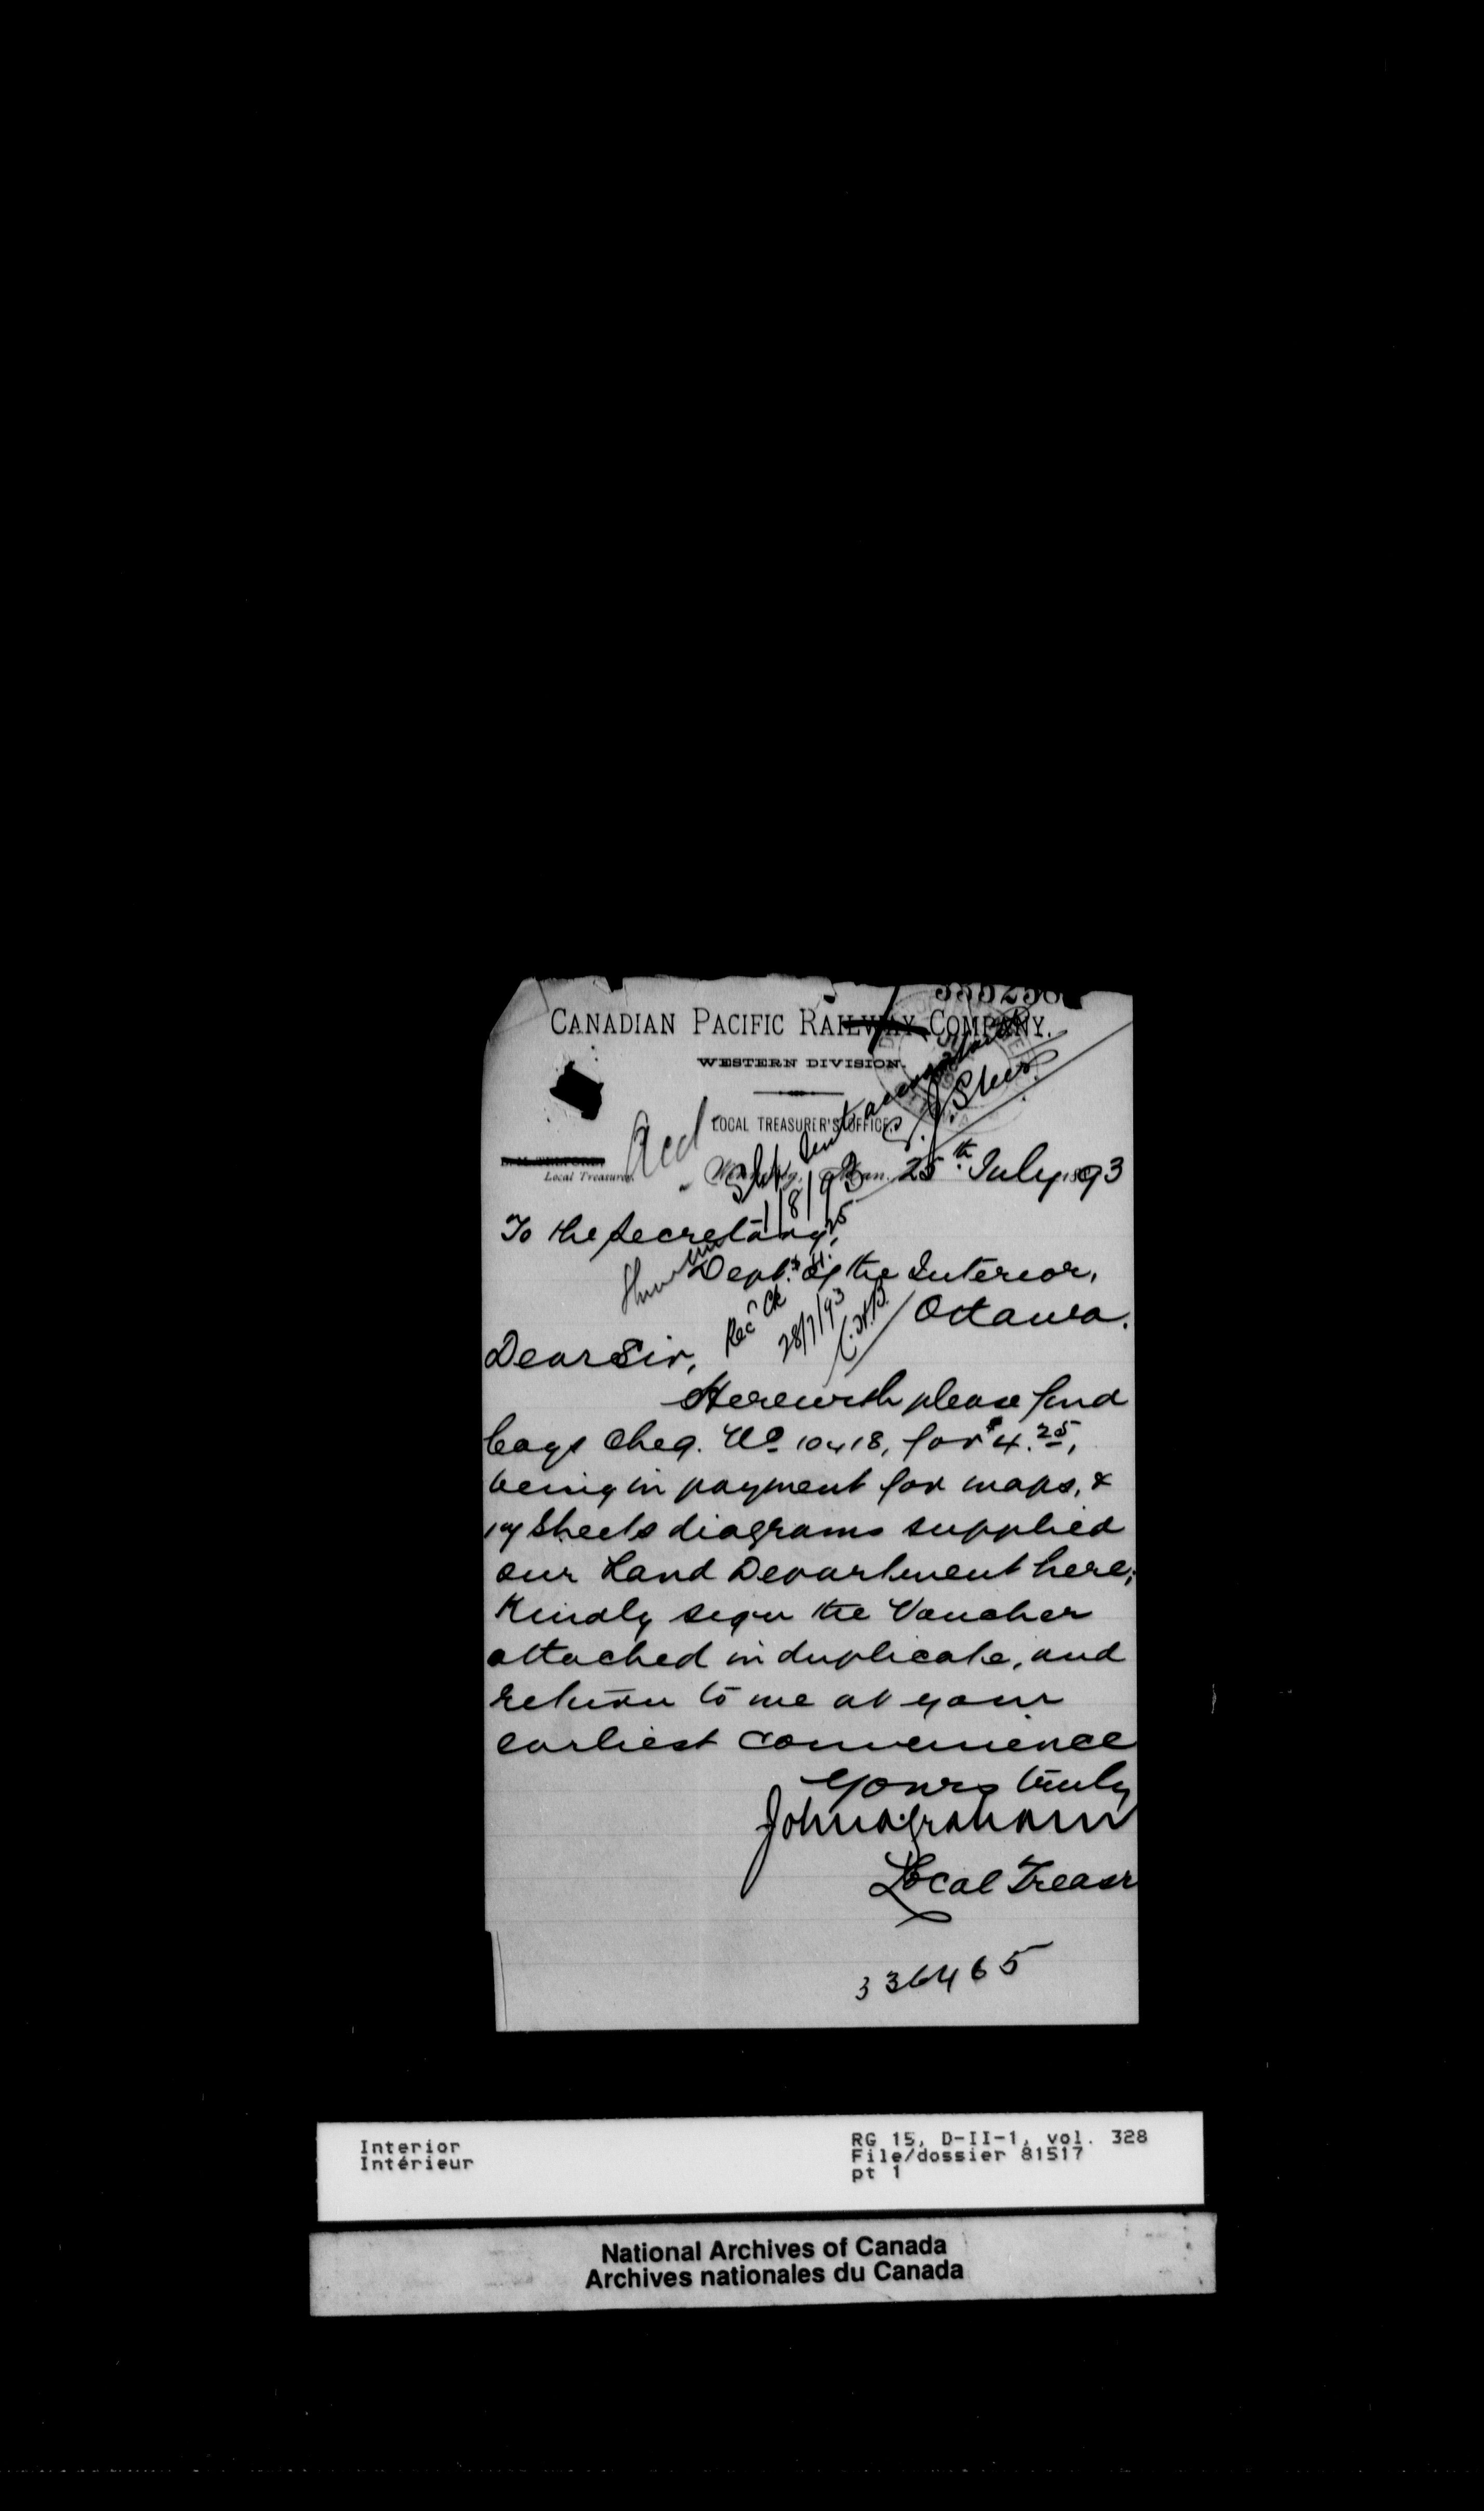 335238
CANADIAN PACIFIC RAILWAY COMPANY.
WESTERN DIVISION.
LOCAL TREASURER'S OFFICE.
Local Treasurer.
Winnipeg, Man. 25th July 1893
1/8/93
To the Secretary,
Dept. of the Interior,
Ottawa.
Recd Ck $4.25
28/7/93
Dear Sir,
Herewith please find
Coys Cheq. No 10418, for $4.25,
being in payment for maps, &
sheets diagrams supplied
our Land Department here;
Kindly sign the Voucher
attached in duplicate, and
return to me at your
earliest convenience
Yours truly
John A. Graham
Local Treasr
336465
Interior
Intérieur
RG 15, D-II-1, vol. 328
File/dossier 81517
pt 1
National Archives of Canada
Archives nationales du Canada